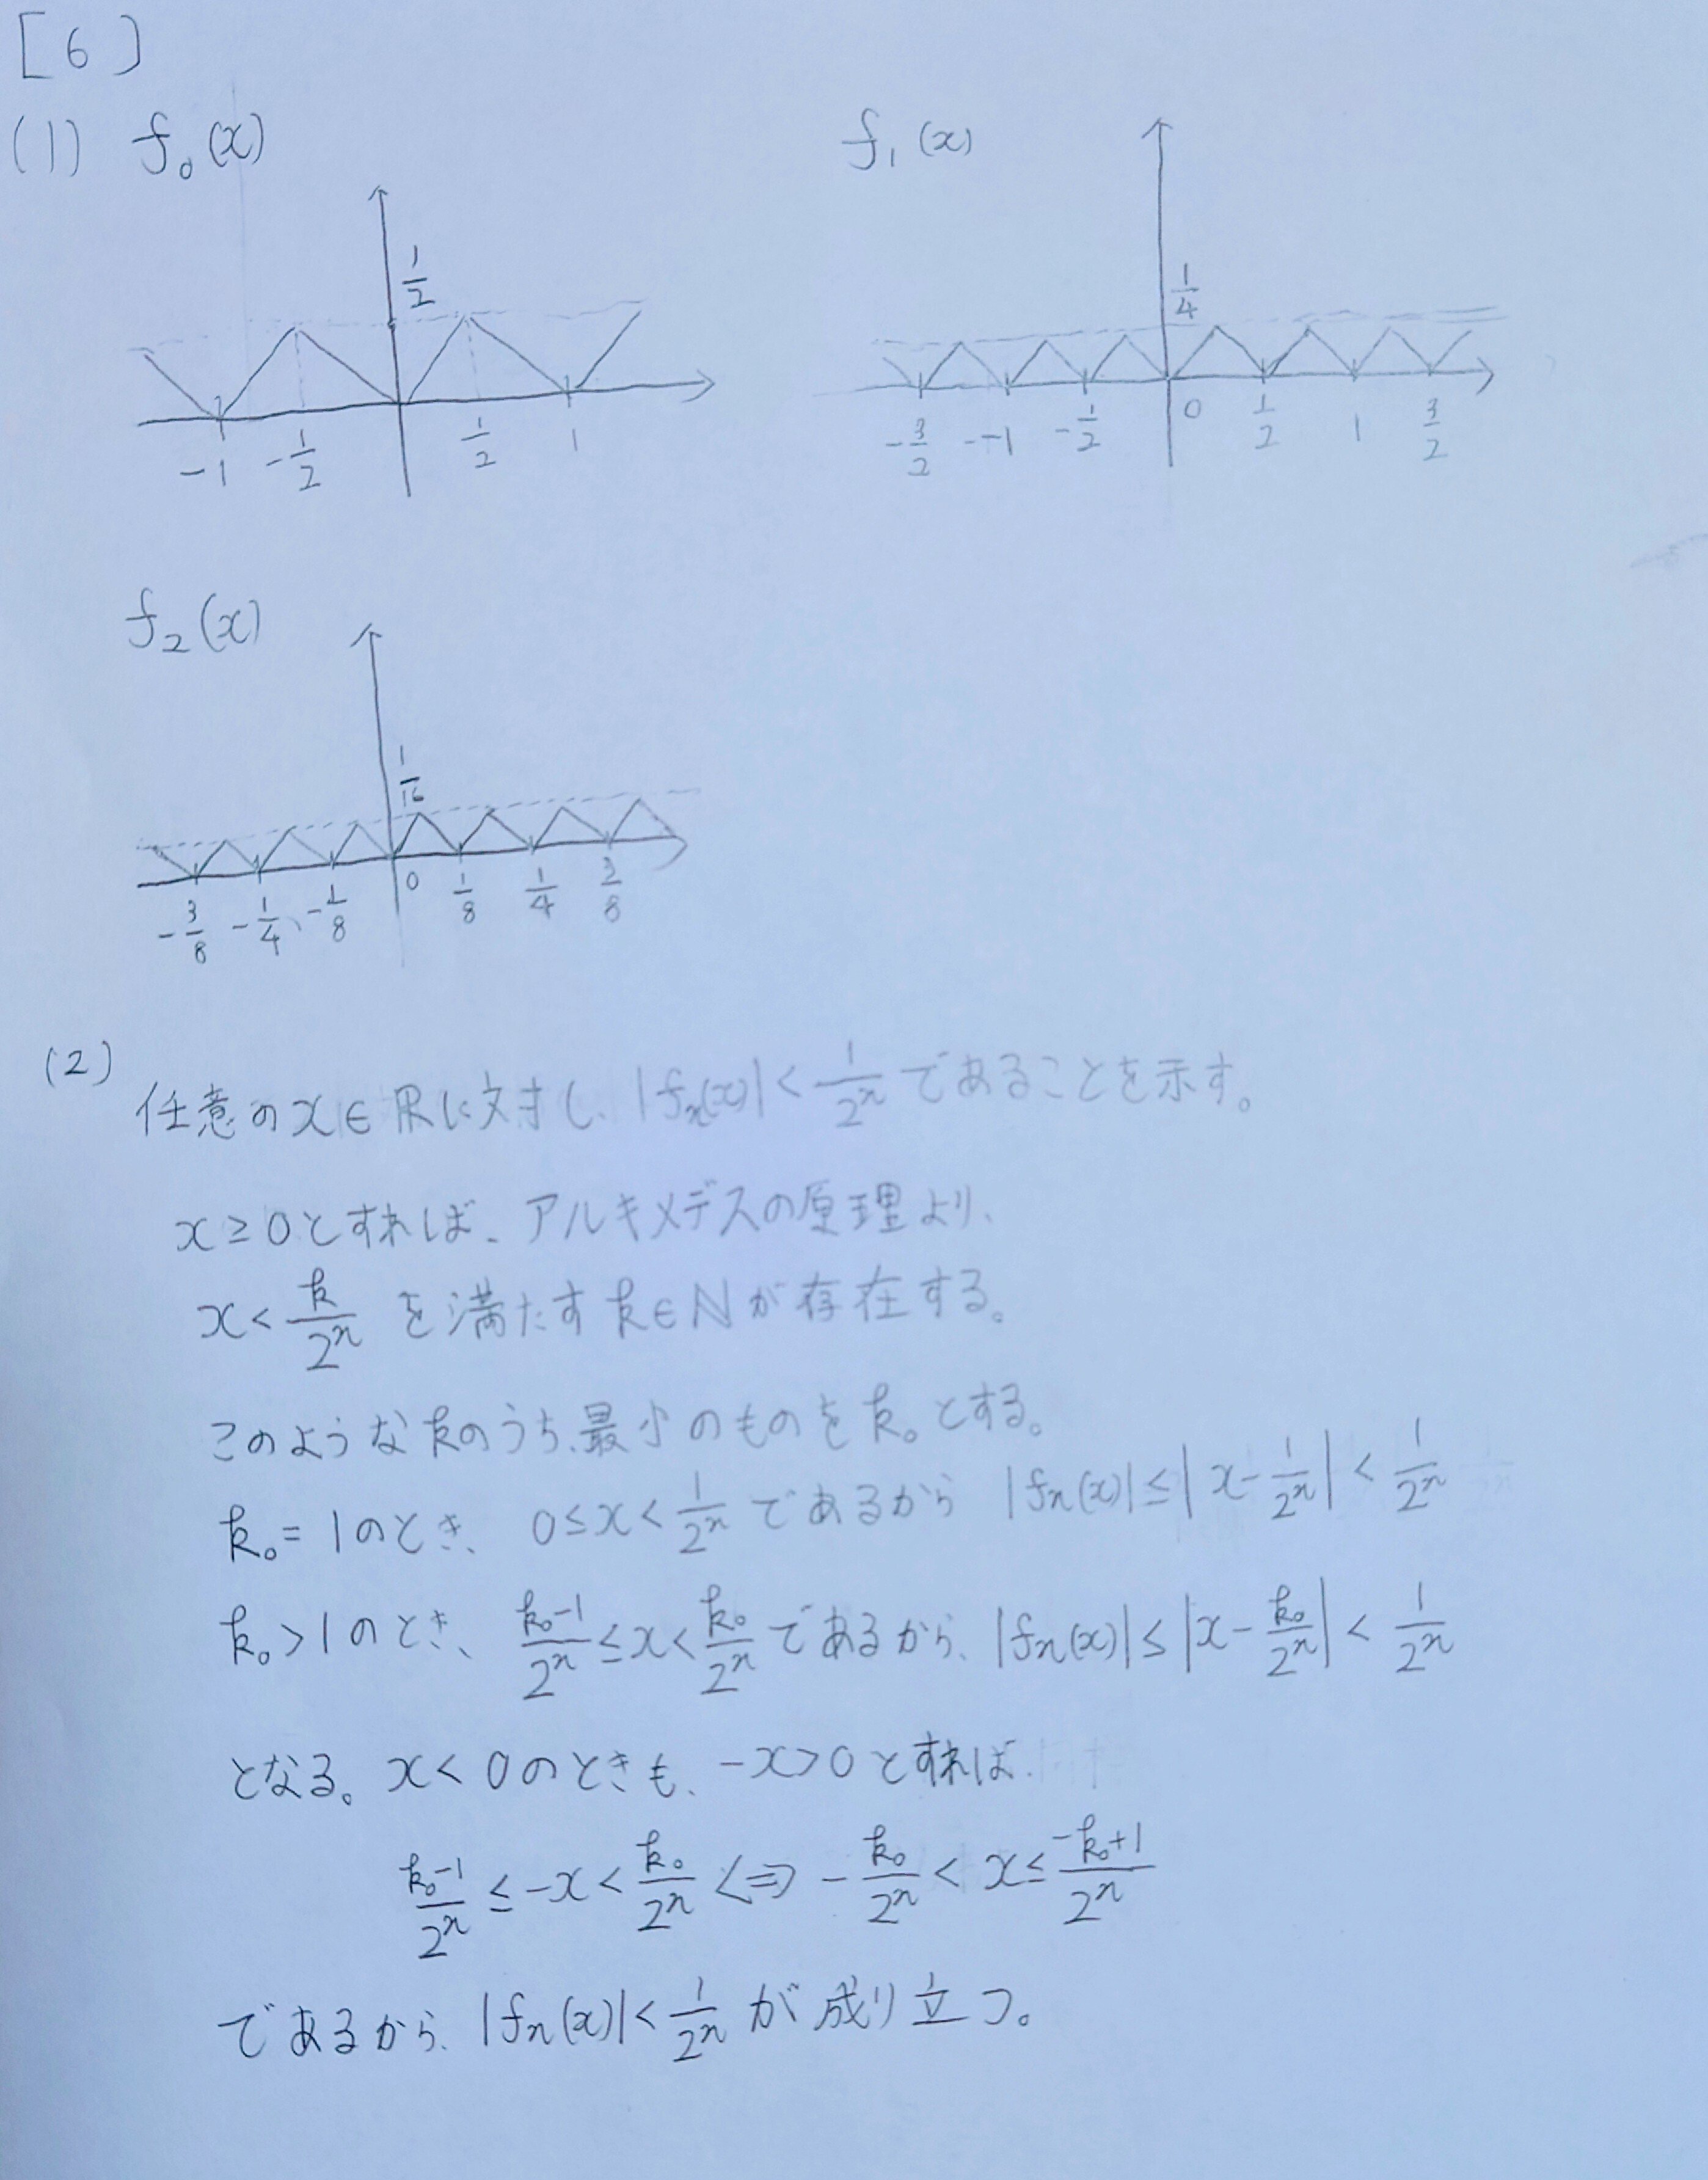 [6]
(1) f₀(x)
1/2
-1 -1/2 1/2 1
f₁(x)
1/4
-3/2 -1 -1/2 0 1/2 1 3/2
f₂(x)
1/16
-3/8 -1/4 -1/8 0 1/8 1/4 3/8
(2)
任意のx∈ℝに対し、|fₙ(x)| < 1/2ⁿ であることを示す。
x≧0とすれば、アルキメデスの原理より、
x < k/2ⁿ を満たすk∈ℕが存在する。
このようなkのうち、最小のものをk₀とする。
k₀=1のとき、 0≤x<1/2ⁿ であるから |fₙ(x)| ≤ |x-1/2ⁿ| < 1/2ⁿ
k₀>1のとき、 (k₀-1)/2ⁿ ≤ x < k₀/2ⁿ であるから、|fₙ(x)| ≤ |x-k₀/2ⁿ| < 1/2ⁿ
となる。x<0のときも、-x>0とすれば、
(k₀-1)/2ⁿ ≤ -x < k₀/2ⁿ <=> -k₀/2ⁿ < x ≤ (-k₀+1)/2ⁿ
であるから、|fₙ(x)| < 1/2ⁿ が成り立つ。